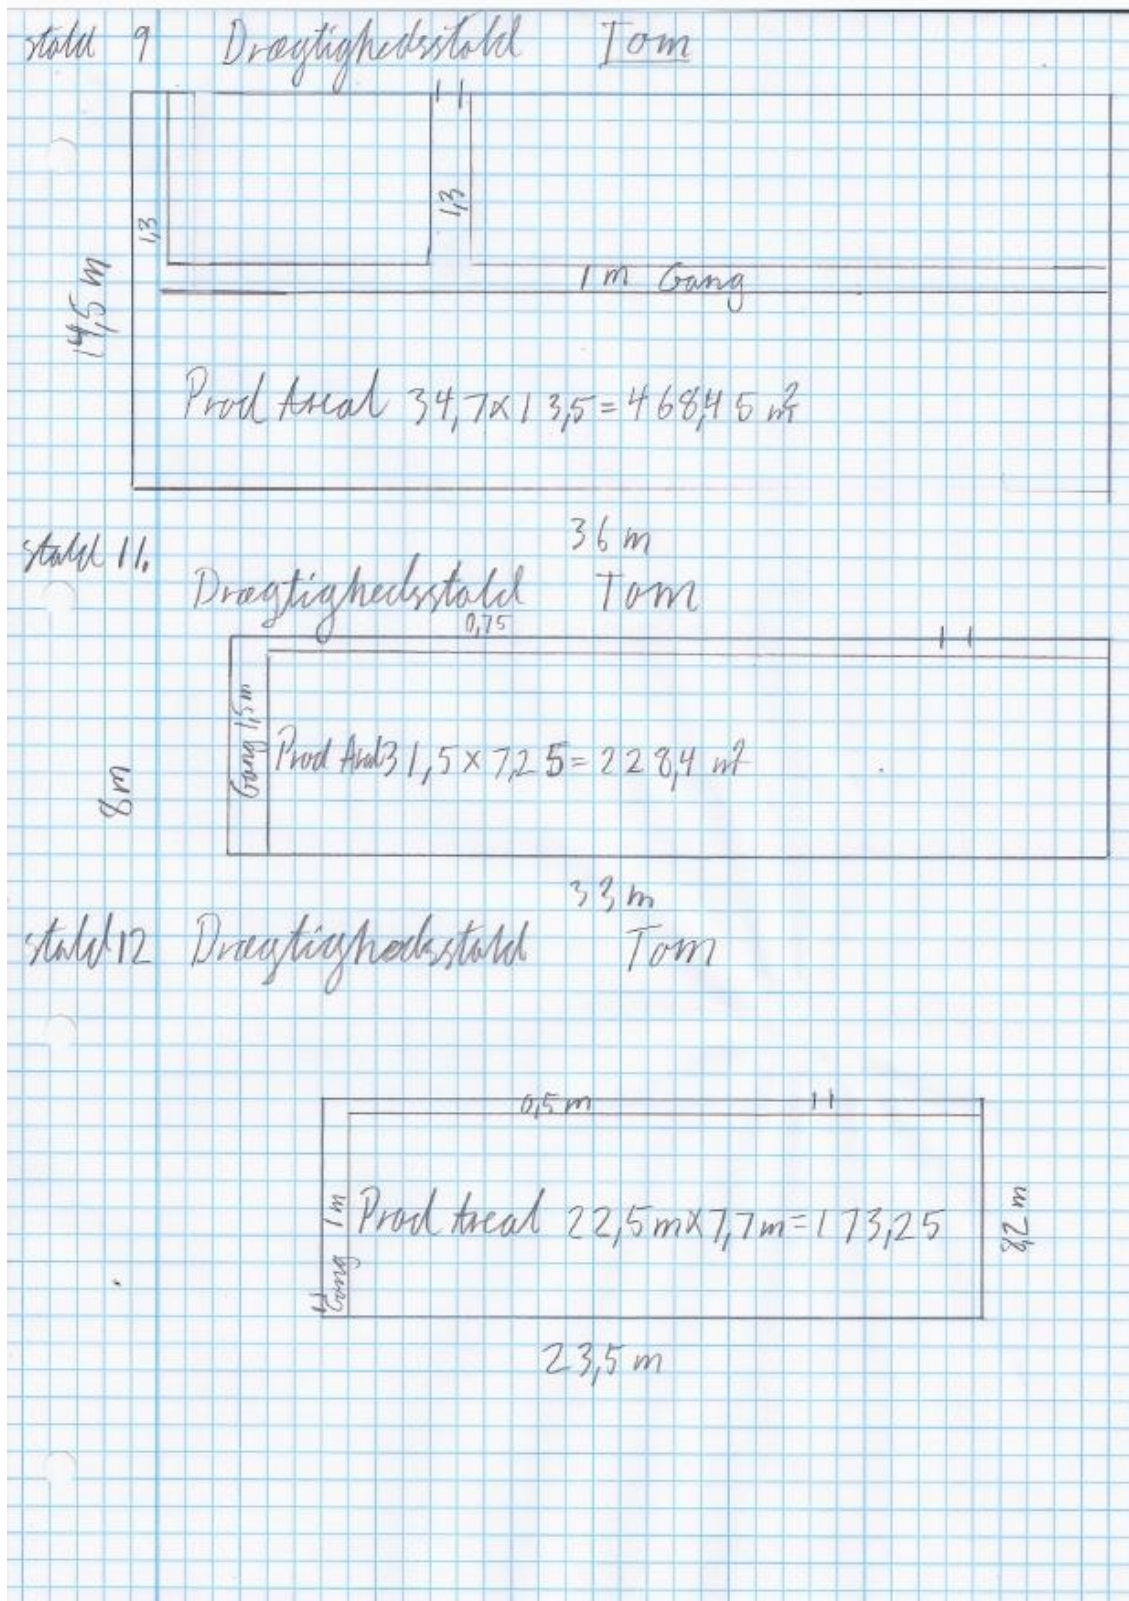 stald 9 Drægtighedsstald Tom
1,3
1,3
1 m Gang
14,5 m
Prod Areal 34,7x13,5=468,45 m²
36 m
stald 11.
Drægtighedsstald Tom
0,75
Gang 1,5m
Prod Areal 31,5 x 7,25=228,4 m²
8m
33 m
stald 12 Drægtighedsstald Tom
0,5 m
Gang 1m
Prod Areal 22,5mx7,7m=173,25
8,2 m
23,5 m